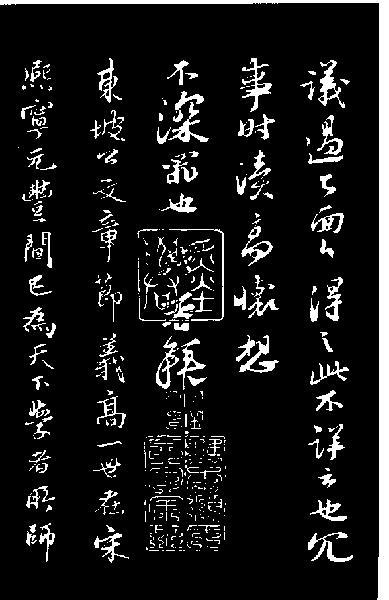 議過 面 得之此不詳云也冗
事時瀆高懷想
不深罪也
東坡公文章節義高一世在宋
熙寧元豐間已為天下學者所師